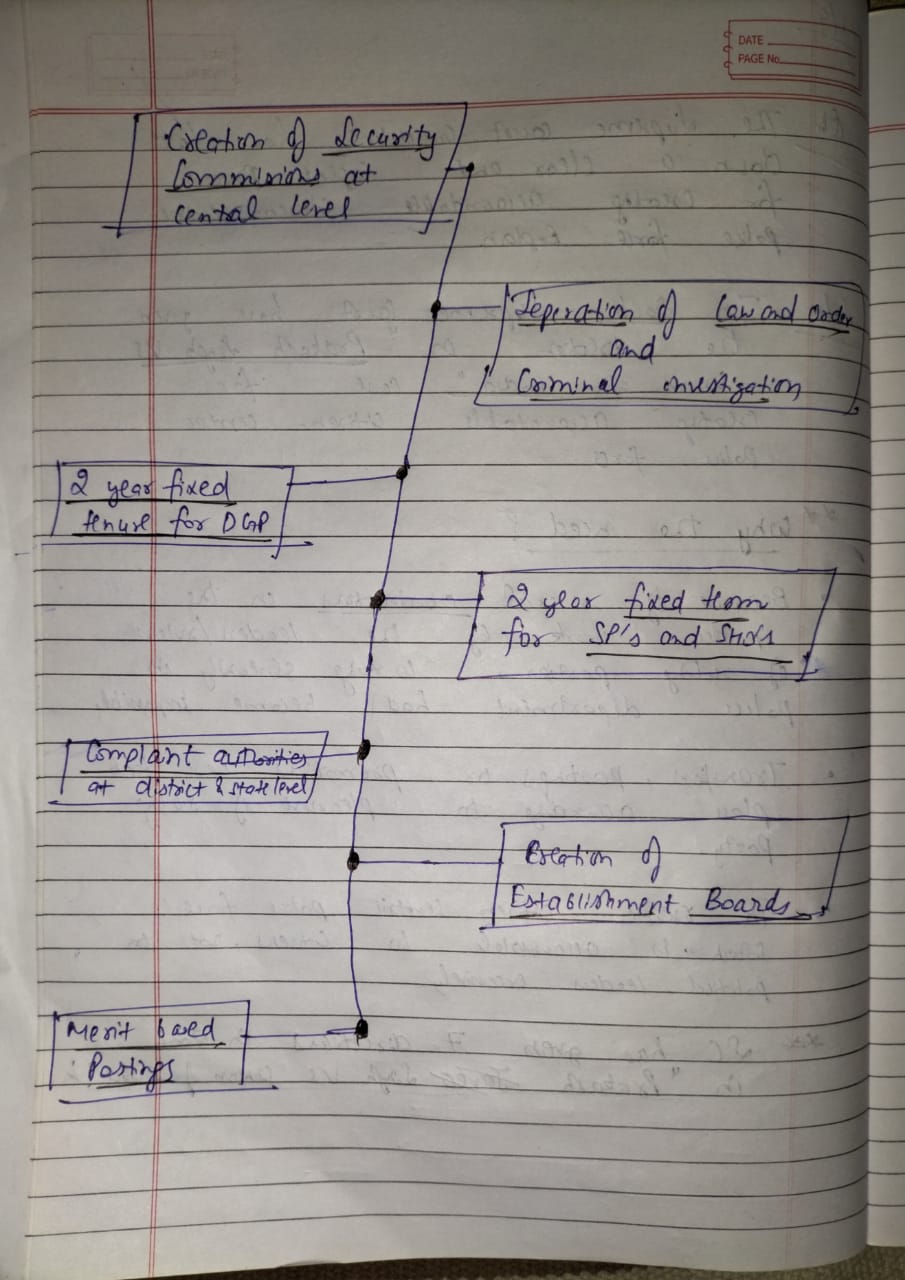 DATE
PAGE No.
Creation of Security
Commisions at
central level
Seperation of Law and Order
and
Criminal investigation
2 year fixed
tenure for DGP
2 year fixed term
for SP's and SHO's
Complaint authorities
at district & state level
Creation of
Establishment Boards
Merit based
Postings